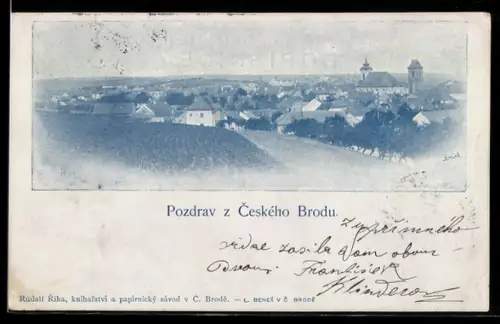 Pozdrav z Českého Brodu.
z upřímného
srdce zasílá Vám oboum
František
Rudolf Říha, knihařství a papírnický závod v Č. Brodě. — L. BENEŠ V Č. BRODĚ